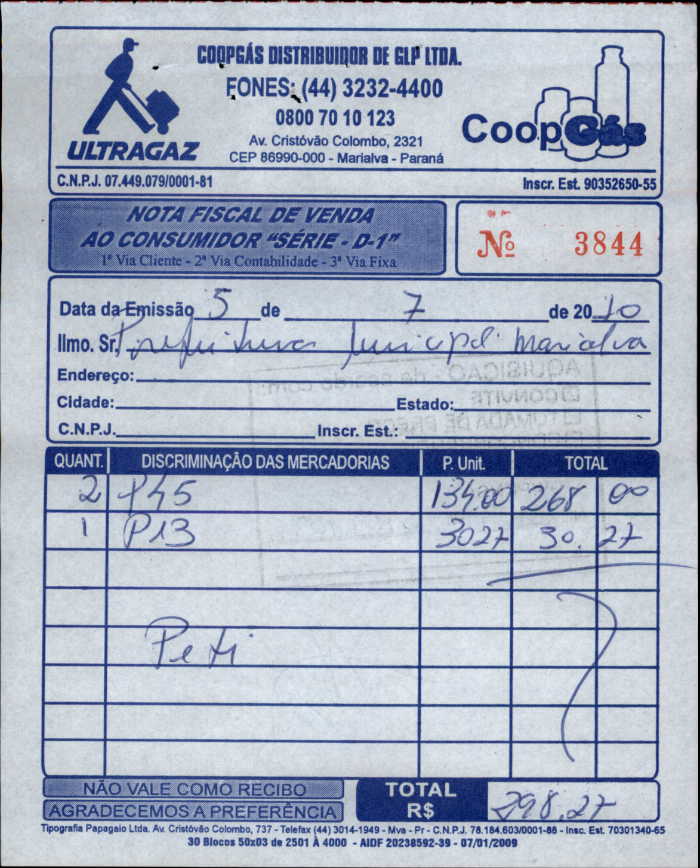 COOPGÁS DISTRIBUIDOR DE GLP LTDA.
FONES: (44) 3232-4400
0800 70 10 123
Av. Cristóvão Colombo, 2321
CEP 86990-000 - Marialva - Paraná
ULTRAGAZ
CoopGás
C.N.P.J. 07.449.079/0001-81
Inscr. Est. 90352650-55
NOTA FISCAL DE VENDA
AO CONSUMIDOR "SÉRIE - D-1"
1ª Via Cliente - 2ª Via Contabilidade - 3ª Via Fixa
Nº 3844
Data da Emissão 5 de 7 de 2010
Ilmo. Sr. Prefeitura Municipal Marialva
Endereço:
Cidade: Estado:
C.N.P.J. Inscr. Est.:
QUANT. DISCRIMINAÇÃO DAS MERCADORIAS P. Unit. TOTAL
2 P45 134,00 268 00
1 P13 3027 30, 27
Peti
NÃO VALE COMO RECIBO
AGRADECEMOS A PREFERÊNCIA
TOTAL R$ 298,27
Tipografia Papagaio Ltda. Av. Cristóvão Colombo, 737 - Telefax (44) 3014-1949 - Mva - Pr - C.N.P.J. 78.184.603/0001-86 - Insc. Est. 70301340-65
30 Blocos 50x03 de 2501 À 4000 - AIDF 20238592-39 - 07/01/2009